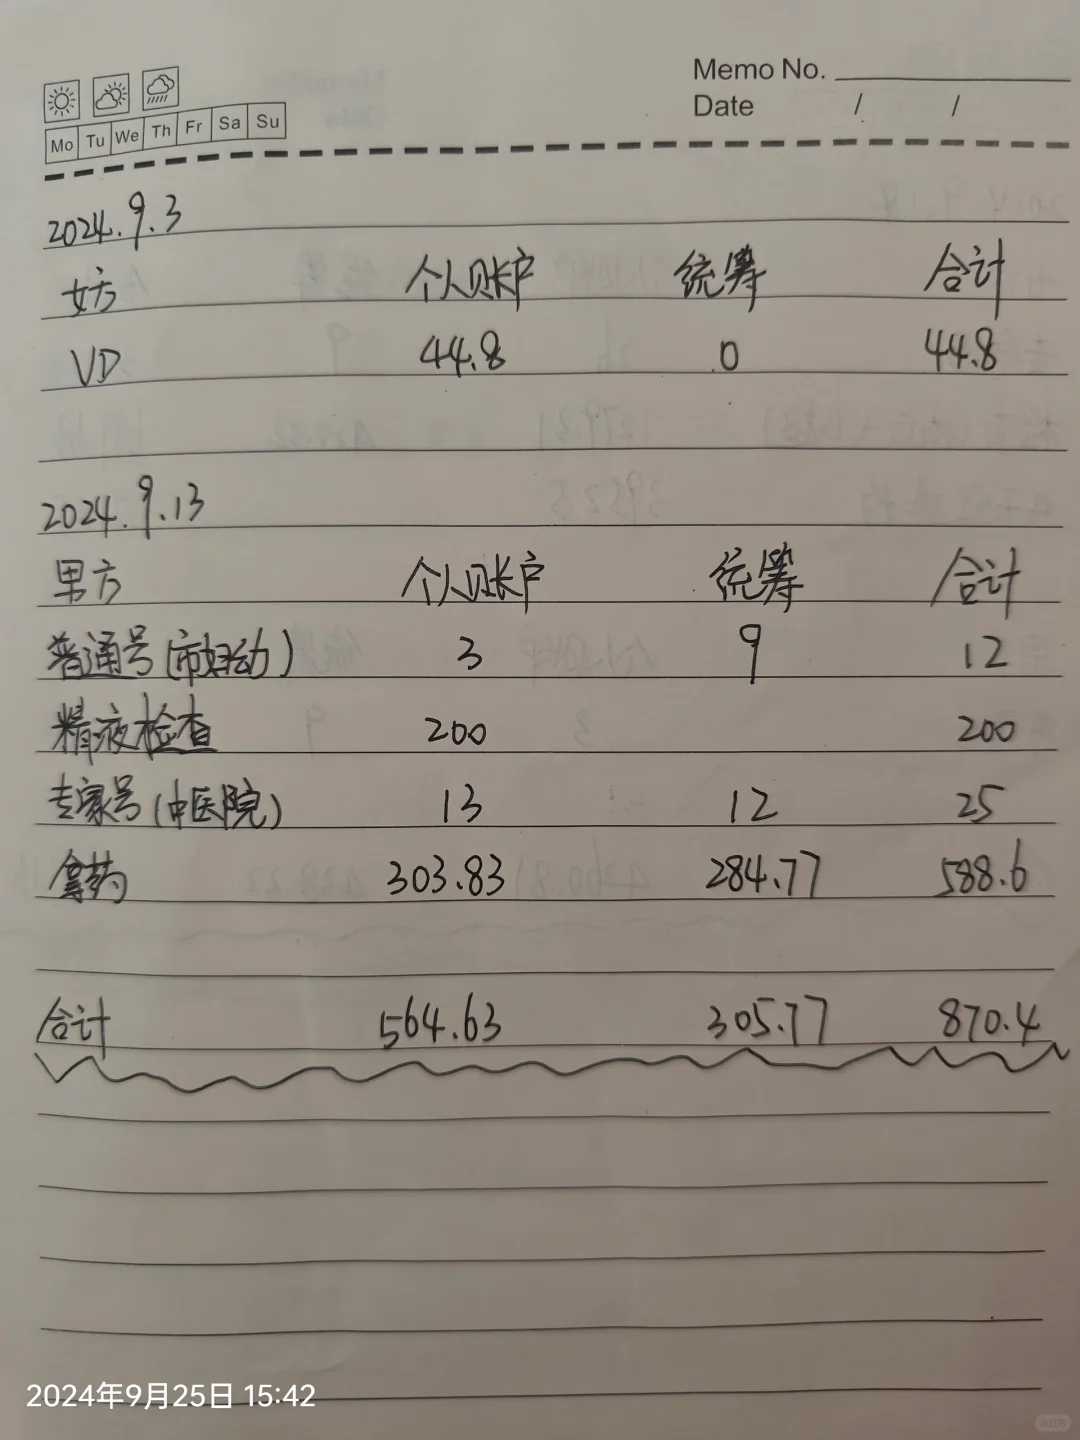 Memo No.
Mo Tu We Th Fr Sa Su
Date / /
2024.9.3
女方 个人账户 统筹 合计
VD 44.8 0 44.8
2024.9.13
男方 个人账户 统筹 合计
普通号(市妇幼) 3 9 12
精液检查 200 200
专家号(中医院) 13 12 25
拿药 303.83 284.77 588.6
合计 564.63 305.77 870.4
2024年9月25日 15:42